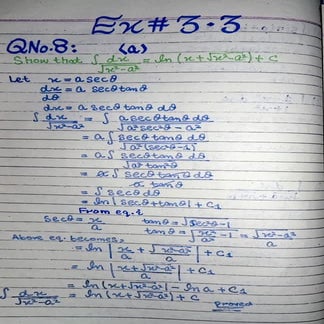 Ex # 3.3
QNo.8: (a)
Show that ∫ dx/√x²-a² = ln (x+√x²-a²) + c
Let x = a secθ
dx/dθ = a secθ tanθ
dx = a secθ tanθ dθ
∫ dx/√x²-a² = ∫ a secθ tanθ dθ/√a²sec²θ - a²
= a ∫ secθ tanθ dθ/√a²(sec²θ-1)
= a ∫ secθ tanθ dθ/√a² tan²θ
= a ∫ secθ tanθ dθ/a tanθ
= ∫ secθ dθ
= ln|secθ + tanθ| + C₁
From eq. 1
secθ = x/a tanθ = √sec²θ-1
tanθ = √x²/a² - 1 = √x²-a²/a
Above eq. becomes,
= ln |x/a + √x²-a²/a| + C₁
= ln |x+√x²-a²/a| + C₁
= ln |x+√x²-a²| - ln a + C₁
∫ dx/√x²-a² = ln (x+√x²-a²) + C
Proved